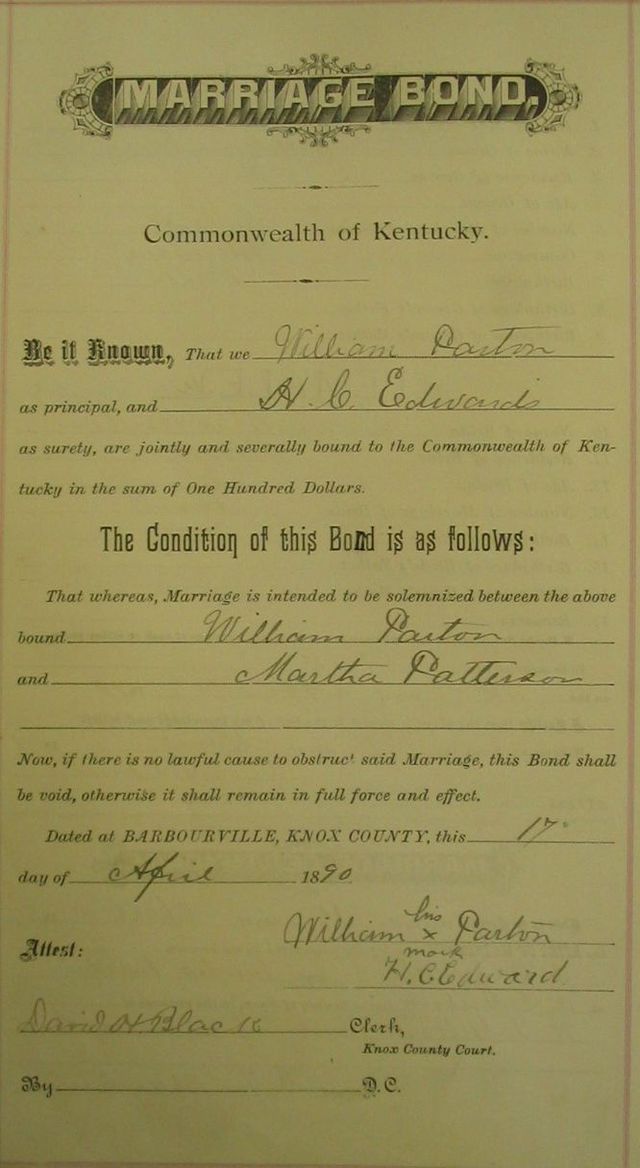 MARRIAGE BOND,
Commonwealth of Kentucky.
Be it Known, That we William Parton
as principal, and H. C. Edwards
as surety, are jointly and severally bound to the Commonwealth of Ken-
tucky in the sum of One Hundred Dollars.
The Condition of this Bond is as follows:
That whereas, Marriage is intended to be solemnized between the above
bound William Parton
and Martha Patterson
Now, if there is no lawful cause to obstruct said Marriage, this Bond shall
be void, otherwise it shall remain in full force and effect.
Dated at BARBOURVILLE, KNOX COUNTY, this 17
day of April 1890
his
William x Parton
mark
Attest:
H. C Edward
David H Black Clerk,
Knox County Court.
By D. C.